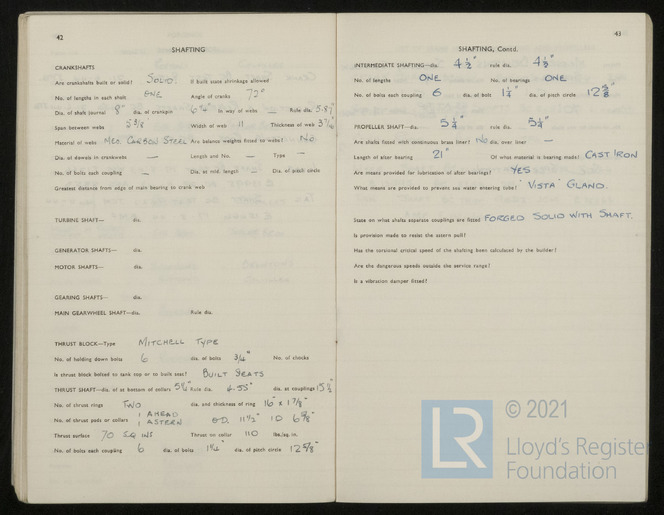 42
SHAFTING
CRANKSHAFTS
Are crankshafts built or solid? SOLID. If built state shrinkage allowed
No. of lengths in each shaft ONE Angle of cranks 72°
Dia. of shaft journal 8" dia. of crankpin 6¾" in way of webs — Rule dia. 5.87"
Span between webs 5⅜ Width of web 11 Thickness of web
Material of webs MED. CARBON STEEL Are balance weights fitted to webs? NO
Dia. of dowels in crankwebs — Length and No. — Type —
No. of bolts each coupling — Dia. at mid. length — Dia. of pitch circle
Greatest distance from edge of main bearing to crank web
TURBINE SHAFT— dia.
GENERATOR SHAFTS— dia.
MOTOR SHAFTS— dia.
GEARING SHAFTS— dia.
MAIN GEARWHEEL SHAFT—dia. Rule dia.
THRUST BLOCK—Type MITCHELL TYPE
No. of holding down bolts 6 dia. of bolts 3/4" No. of chocks
Is thrust block bolted to tank top or to built seat? BUILT SEATS
THRUST SHAFT—dia. of at bottom of collars 5¼" Rule dia. 4.55" dia. at couplings 15½"
No. of thrust rings TWO dia. and thickness of ring 16" x 1⅞"
No. of thrust pads or collars 1 AHEAD
1 ASTERN OD. 11½" ID 6⅝"
Thrust surface 70 SQ INS Thrust on collar 110 lbs./sq. in.
No. of bolts each coupling 6 dia. of bolts 1¼" dia. of pitch circle 12⅝"
43
SHAFTING, Contd.
INTERMEDIATE SHAFTING—dia. 4½" rule dia. 4½"
No. of lengths ONE No. of bearings ONE
No. of bolts each coupling 6 dia. of bolt 1¼" dia. of pitch circle 12⅝"
PROPELLER SHAFT—dia. 5¼" rule dia. 5¼"
Are shafts fitted with continuous brass liner? NO dia. over liner —
Length of after bearing 21" Of what material is bearing made? CAST IRON
Are means provided for lubrication of after bearings? YES
What means are provided to prevent sea water entering tube? 'VISTA' GLAND.
State on what shafts separate couplings are fitted FORGED SOLID WITH SHAFT.
Is provision made to resist the astern pull?
Has the torsional critical speed of the shafting been calculated by the builder?
Are the dangerous speeds outside the service range?
Is a vibration damper fitted?
LR © 2021
Lloyd's Register
Foundation